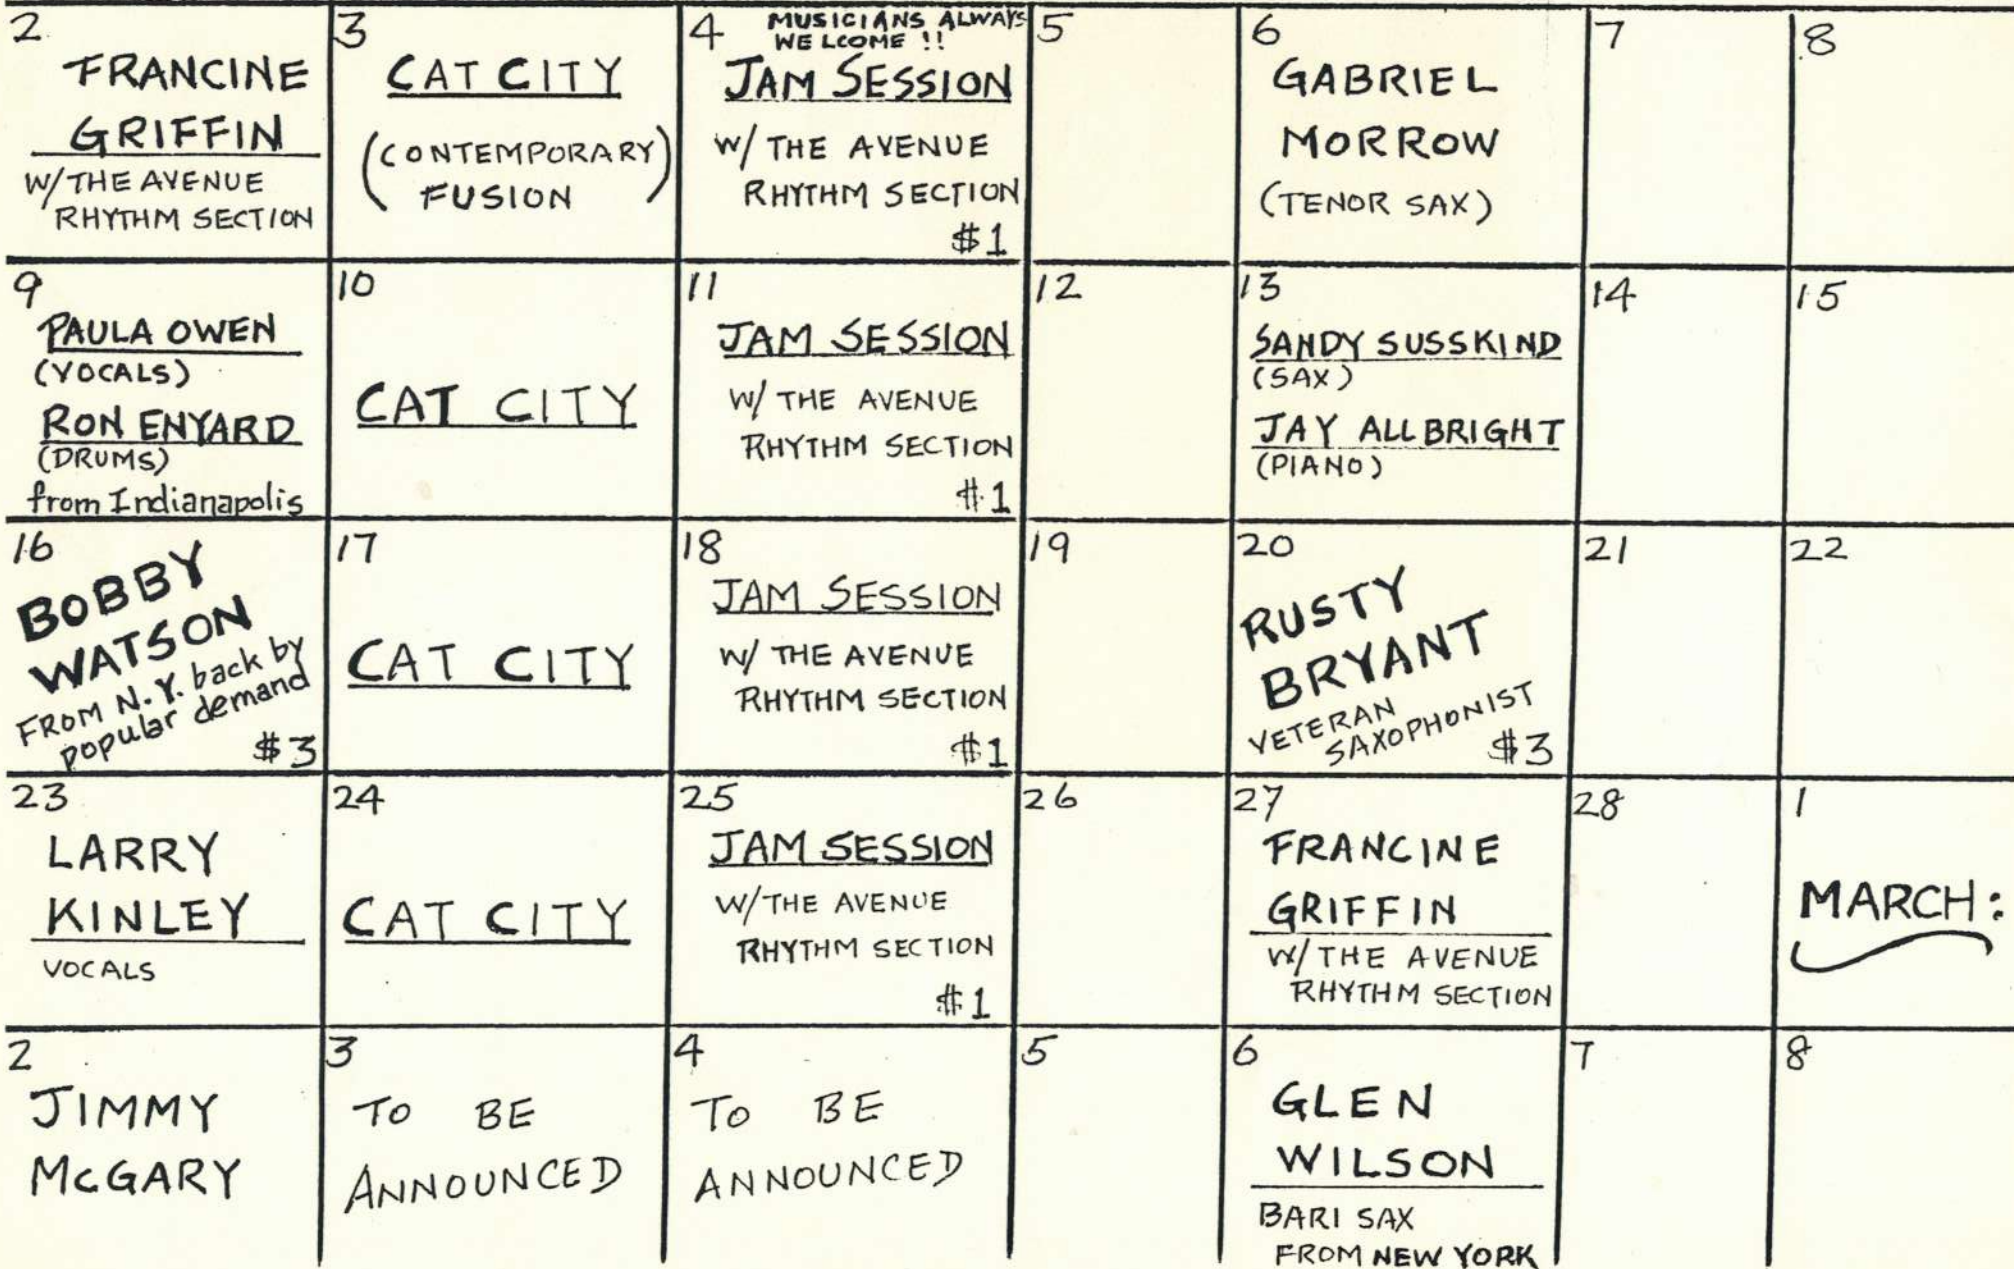 2
FRANCINE
GRIFFIN
W/ THE AVENUE
RHYTHM SECTION
3
CAT CITY
(CONTEMPORARY)
( FUSION )
4
MUSICIANS ALWAYS
WELCOME !!
JAM SESSION
W/ THE AVENUE
RHYTHM SECTION
$1
5
6
GABRIEL
MORROW
(TENOR SAX)
7
8
9
PAULA OWEN
(VOCALS)
RON ENYARD
(DRUMS)
from Indianapolis
10
CAT CITY
11
JAM SESSION
W/ THE AVENUE
RHYTHM SECTION
$1
12
13
SANDY SUSSKIND
(SAX)
JAY ALLBRIGHT
(PIANO)
14
15
16
BOBBY
WATSON
FROM N.Y. back by
popular demand
$3
17
CAT CITY
18
JAM SESSION
W/ THE AVENUE
RHYTHM SECTION
$1
19
20
RUSTY
BRYANT
VETERAN
SAXOPHONIST
$3
21
22
23
LARRY
KINLEY
VOCALS
24
CAT CITY
25
JAM SESSION
W/ THE AVENUE
RHYTHM SECTION
$1
26
27
FRANCINE
GRIFFIN
W/ THE AVENUE
RHYTHM SECTION
28
1
MARCH:
2
JIMMY
McGARY
3
TO BE
ANNOUNCED
4
TO BE
ANNOUNCED
5
6
GLEN
WILSON
BARI SAX
FROM NEW YORK
7
8